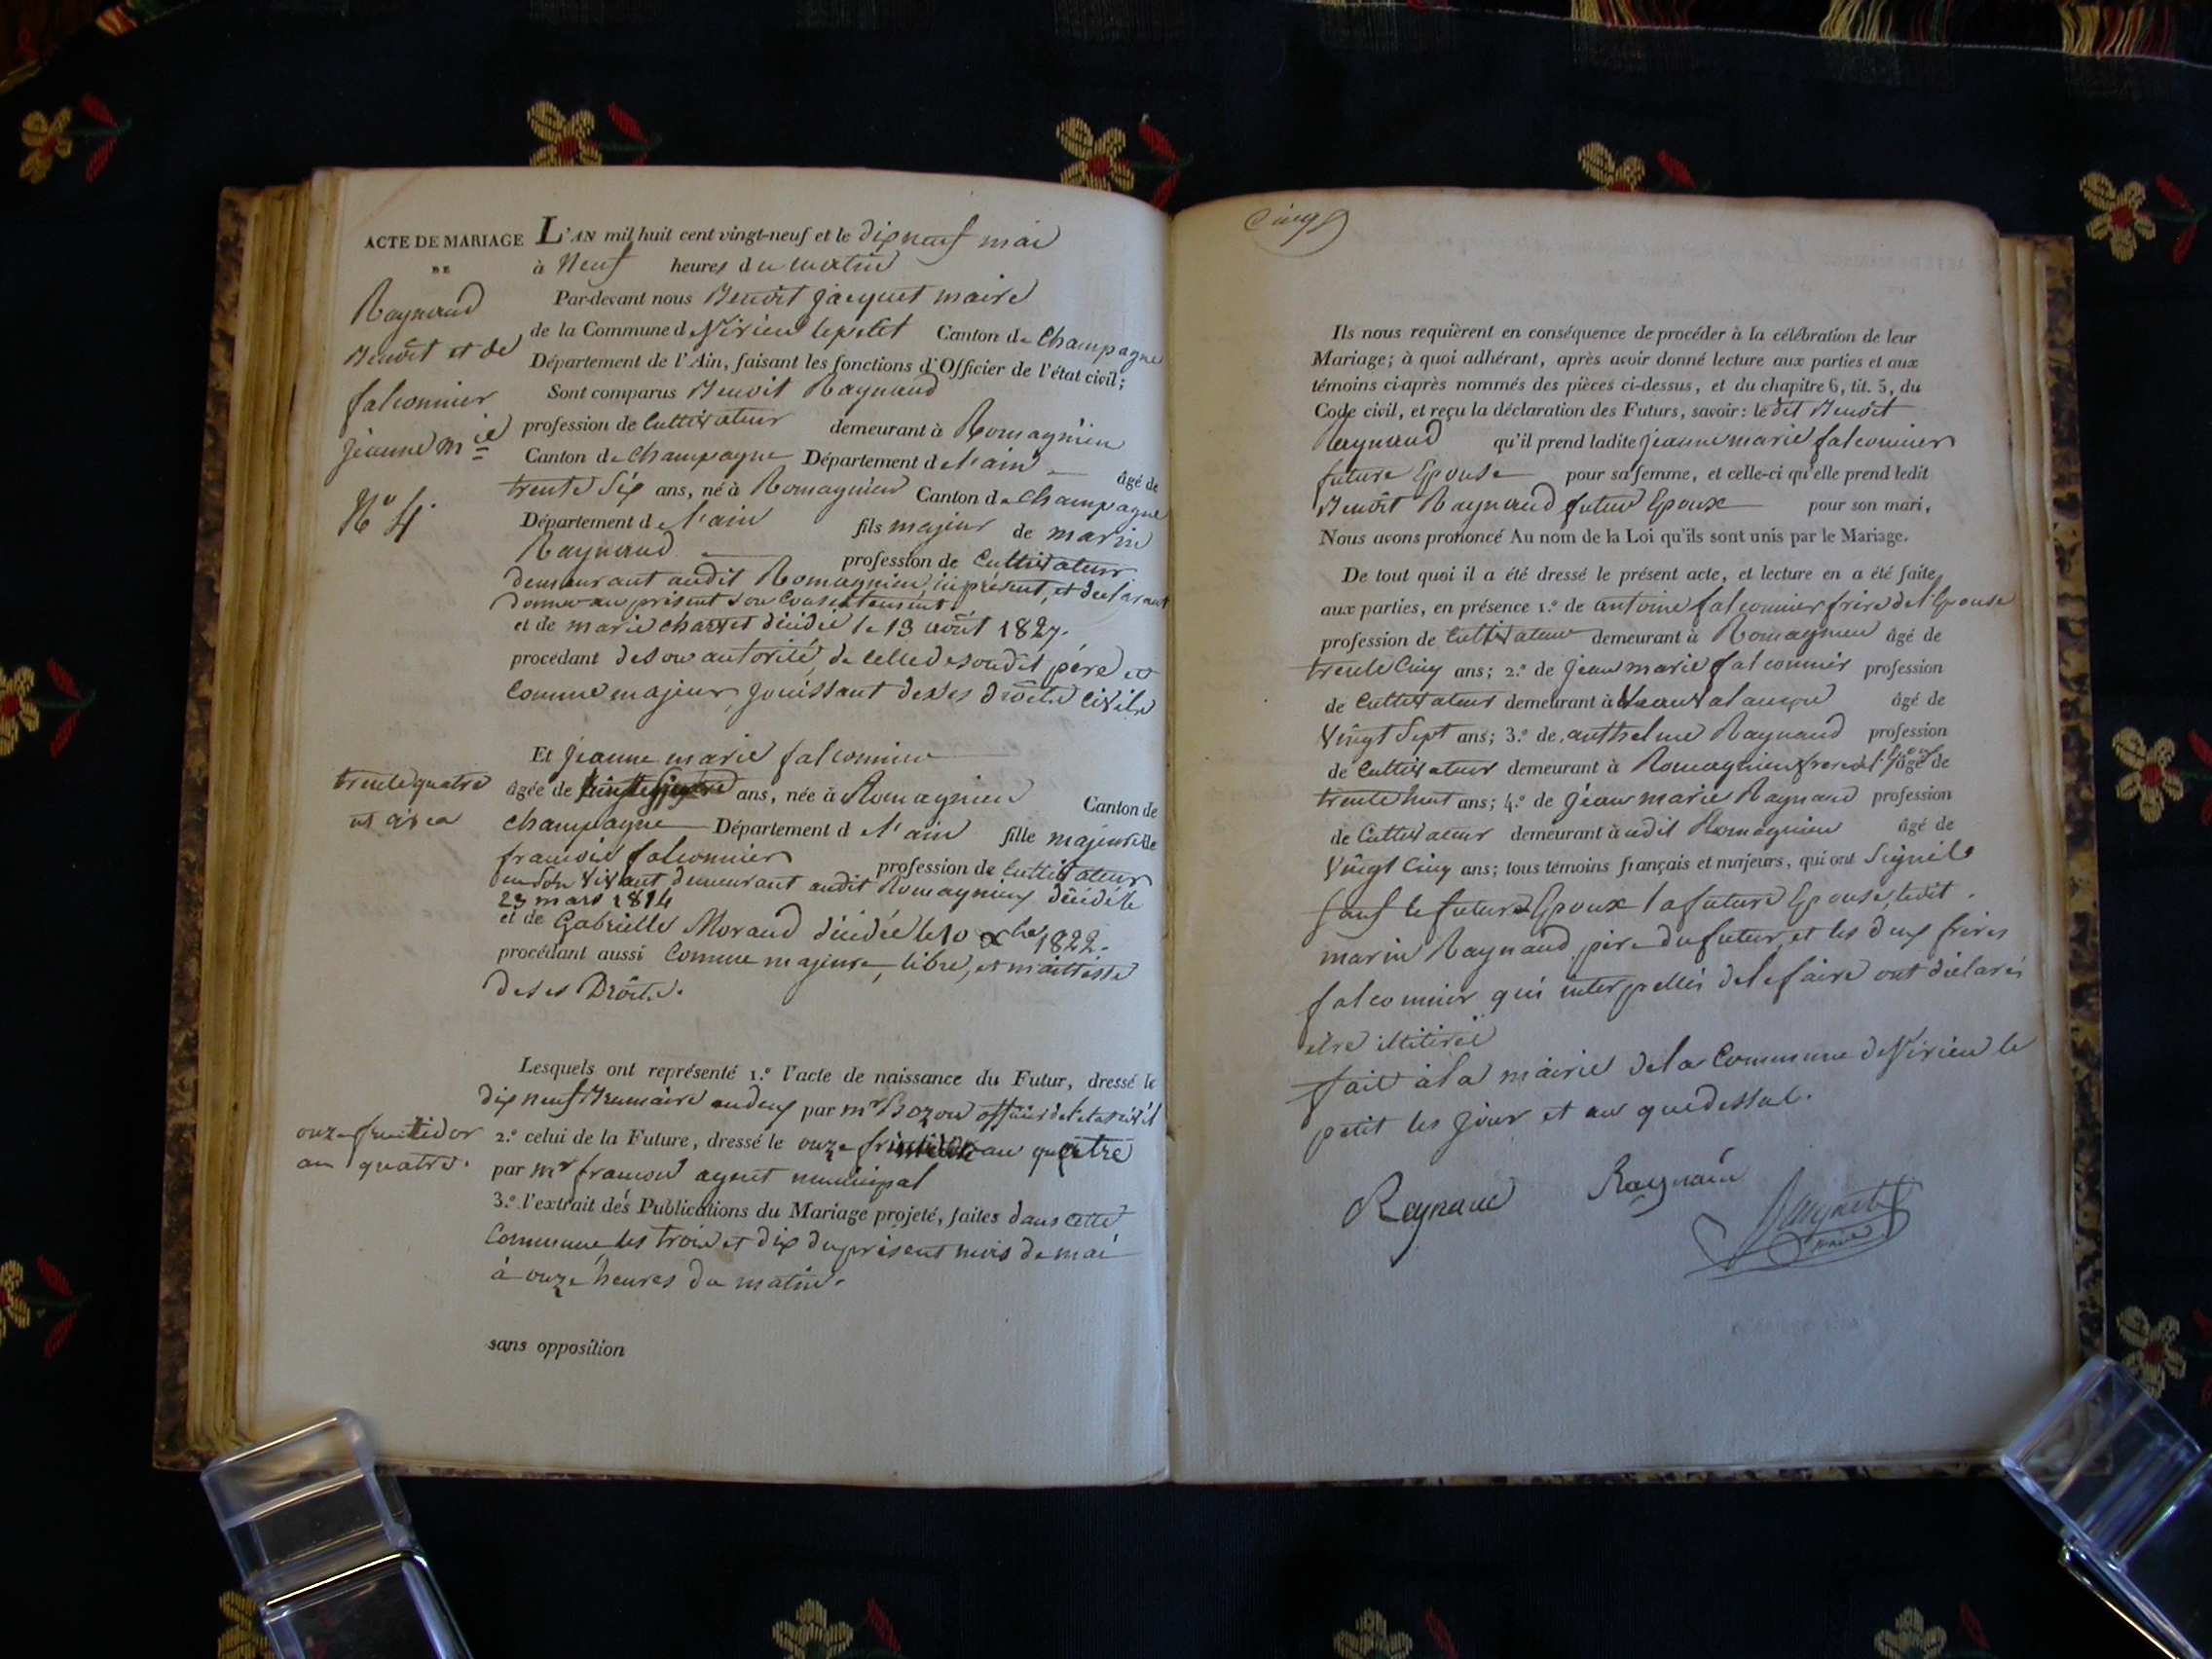 ACTE DE MARIAGE
DE
Raynaud
Benoit et de
falconnier
jeanne mie
No 4.
L'AN mil huit cent vingt-neuf et le dixneuf mai
à Neuf heures du matin
Par-devant nous Benoit jacquet maire
de la Commune d Virieu lepetit Canton de Champagne
Département de l'Ain, faisant les fonctions d'Officier de l'état civil;
Sont comparus Benoit Raynaud
profession de Cultivateur demeurant à Romagnieu
Canton de Champagne Département de l'ain âgé de
trente Six ans, né à Romagnieu Canton de Champagne
Département de l'ain fils majeur de marin
Raynaud profession de Cultivateur
demeurant audit Romagnieu, ici présent, et déclarant
donner au présent son Consentement.
et de marie charvet décédée le 13 août 1827.
procédant de son autorité, de celle de sondit père et
Comme majeur, jouissant de ses droits civils
Et jeanne marie falconnier
trentequatre
âgée de ans, née à Romagnieu Canton de
champagne Département de l'ain fille majeure de
francois falconnier profession de Cultivateur
en son vivant demeurant audit Romagnieu décédé le
23 mars 1814
et de Gabrielle Morand décédée le 10 xbre 1822.
procédant aussi Comme majeure, libre, et maitresse
de ses Droits.
Lesquels ont représenté 1.º l'acte de naissance du Futur, dressé le
dix neuf Brumaire an deux par mr Bozon officier de l'etat civil
onze fructidor
an quatre.
2.º celui de la Future, dressé le onze an quatre
par mr francois agent municipal
3.º l'extrait des Publications du Mariage projeté, faites dans cette
Commune les trois et dix du présent mois de mai
à onze heures du matin.
sans opposition
Cinq
Ils nous requièrent en conséquence de procéder à la célébration de leur
Mariage; à quoi adhérant, après avoir donné lecture aux parties et aux
témoins ci-après nommés des pièces ci-dessus, et du chapitre 6, tit. 5, du
Code civil, et reçu la déclaration des Futurs, savoir: le dit Benoit
Raynaud qu'il prend ladite jeanne marie falconnier
future Epouse pour sa femme, et celle-ci qu'elle prend ledit
Benoit Raynaud futur Epoux pour son mari,
Nous avons prononcé Au nom de la Loi qu'ils sont unis par le Mariage.
De tout quoi il a été dressé le présent acte, et lecture en a été faite
aux parties, en présence 1.º de antoine falconnier frère de l'Epouse
profession de Cultivateur demeurant à Romagnieu âgé de
trente Cinq ans; 2.º de jean marie falconnier profession
de Cultivateur demeurant à âgé de
Vingt Sept ans; 3.º de anthelme Raynaud profession
de Cultivateur demeurant à Romagnieu frère de l'Epoux âgé de
trente huit ans; 4.º de jean marie Raynaud profession
de Cultivateur demeurant à udit Romagnieu âgé de
Vingt Cinq ans; tous témoins français et majeurs, qui ont Signé
Sauf le futur Epoux la future Epouse, ledit
marin Raynaud, père du futur, et les deux frères
falconnier qui interpellés de le faire ont déclarés
etre illitirés
fait à la mairie de la Commune de Virieu le
petit les jour et an quedessus.
Raynaud
Raynaud
Jacquet
maire